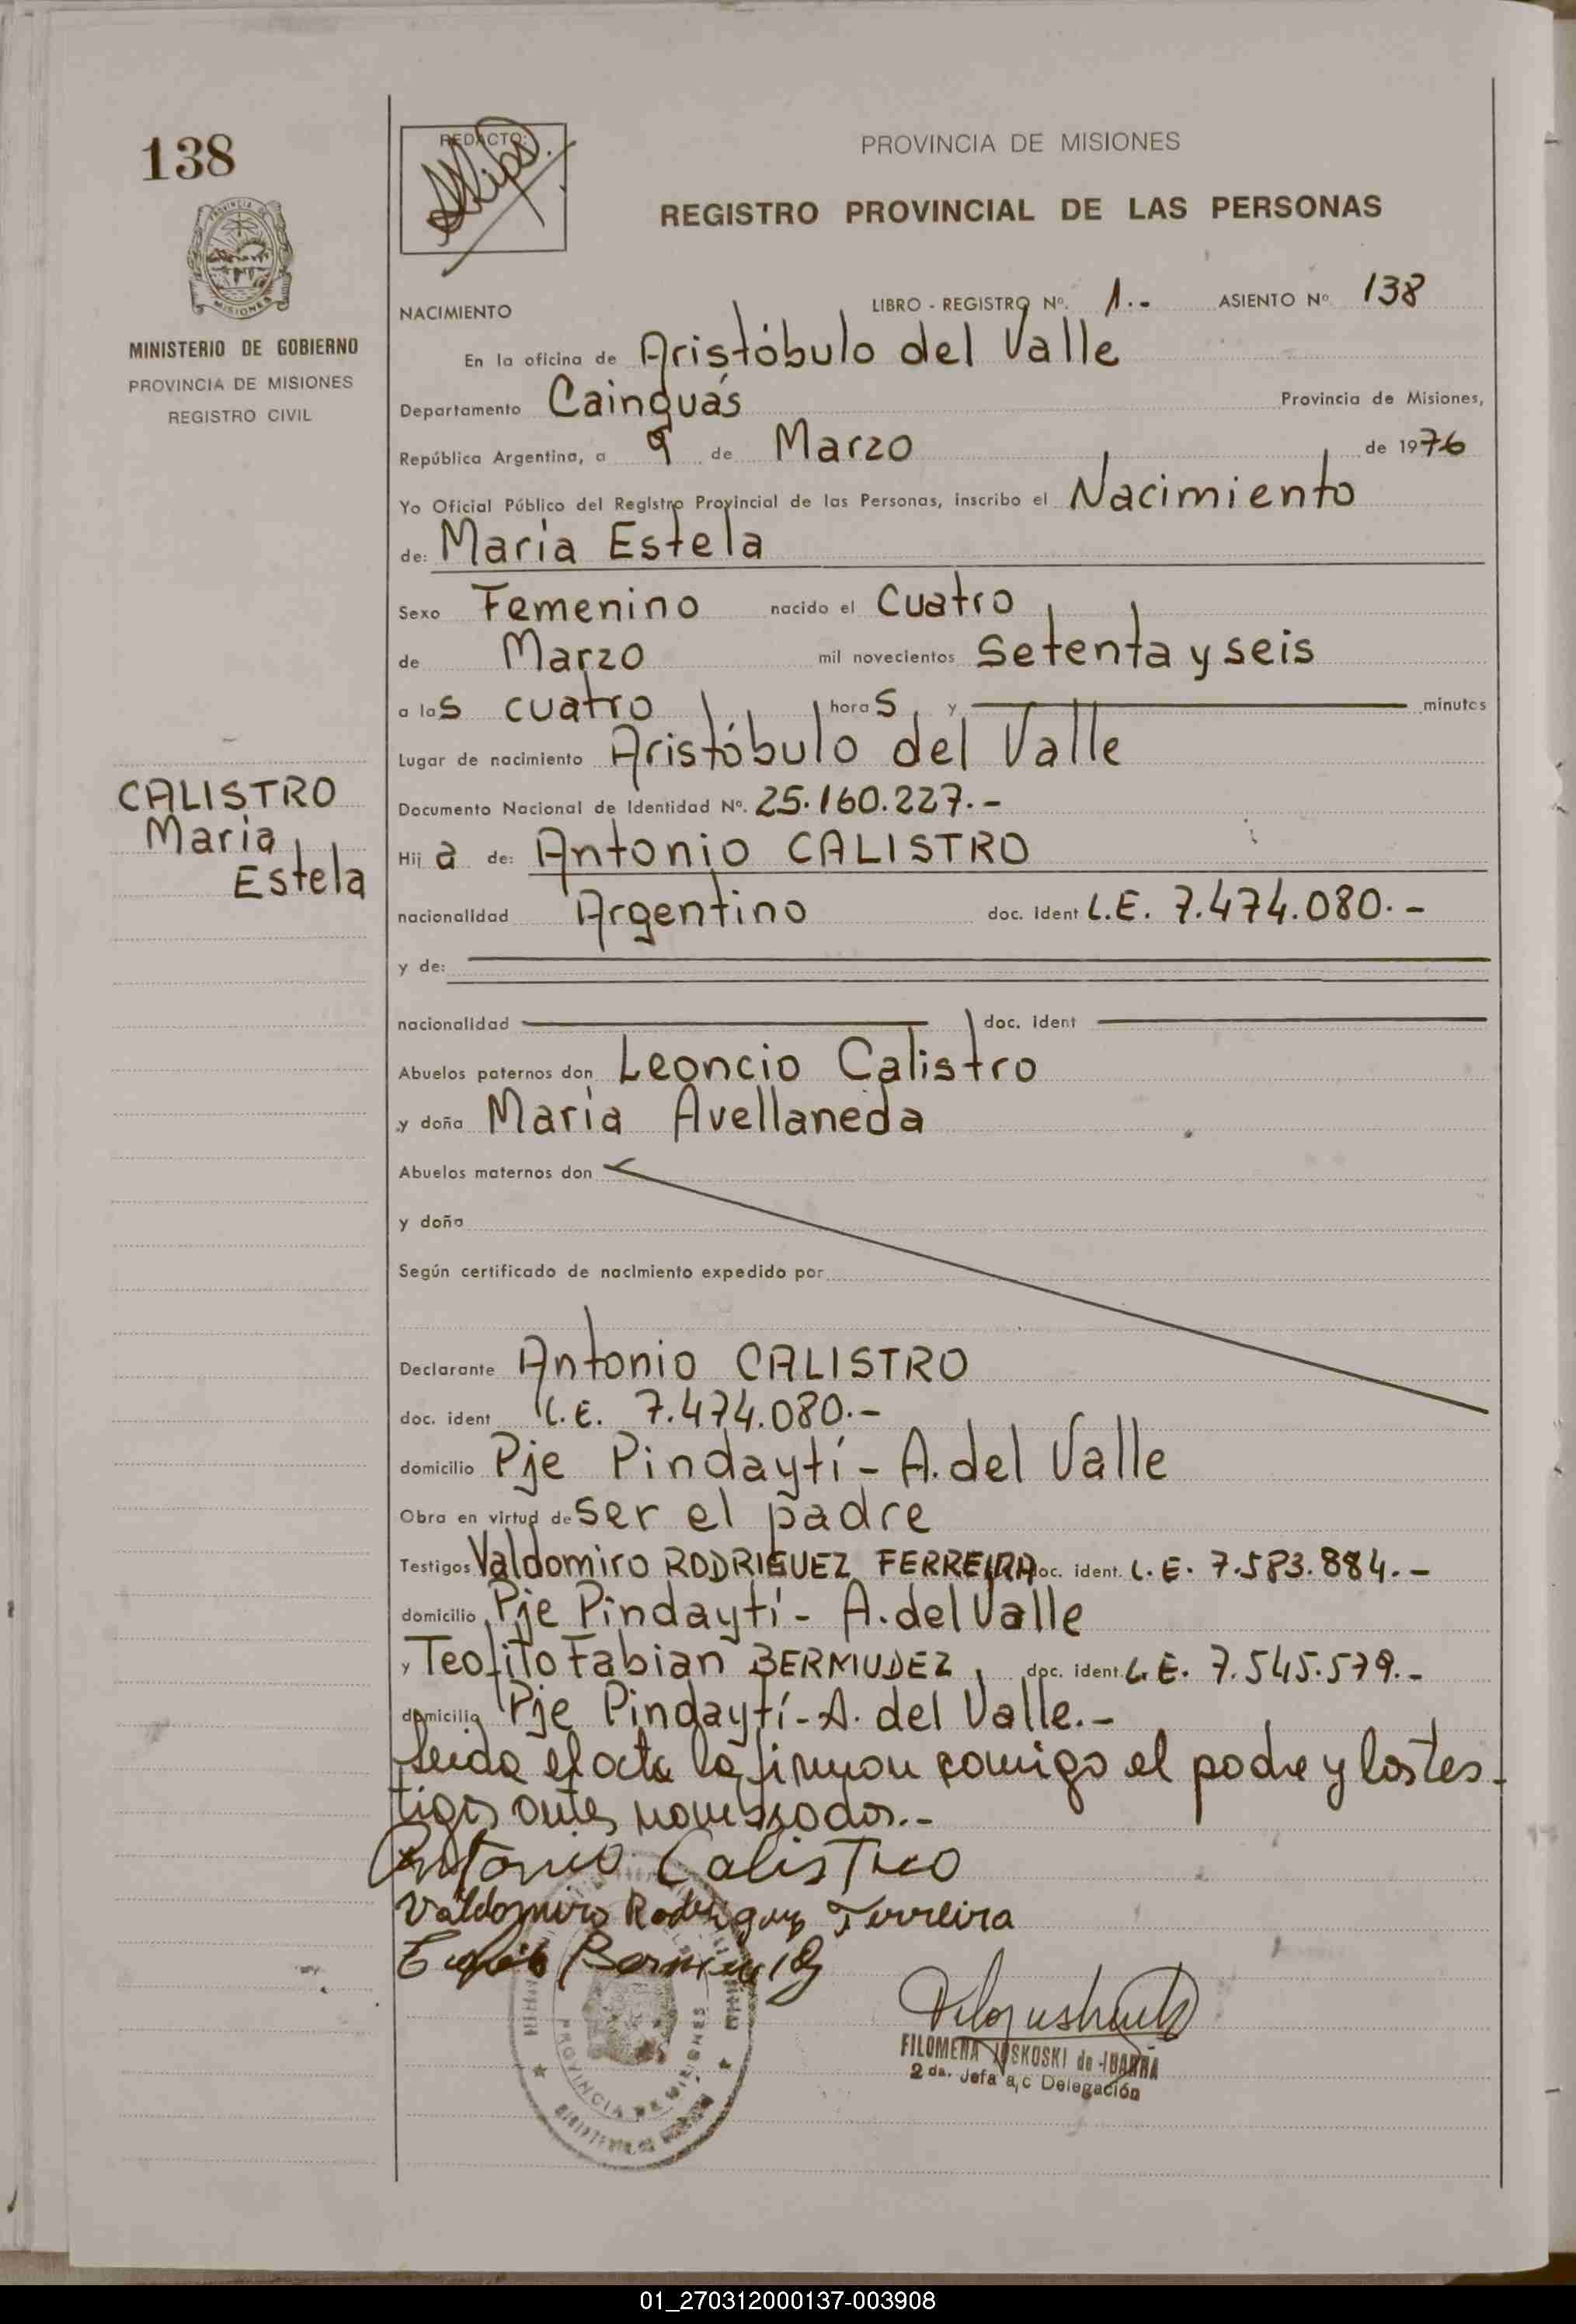 138
MINISTERIO DE GOBIERNO
PROVINCIA DE MISIONES
REGISTRO CIVIL
CALISTRO
Maria
Estela
REDACTO:
PROVINCIA DE MISIONES
REGISTRO PROVINCIAL DE LAS PERSONAS
NACIMIENTO LIBRO - REGISTRO Nº. 1.- ASIENTO Nº 138
En la oficina de Aristóbulo del Valle
Departamento Cainguás Provincia de Misiones,
República Argentina, a 9 de Marzo de 1976
Yo Oficial Público del Registro Provincial de las Personas, inscribo el Nacimiento
de: María Estela
Sexo Femenino nacido el cuatro
de Marzo mil novecientos Setenta y seis
a las cuatro horas y minutos
Lugar de nacimiento Aristóbulo del Valle
Documento Nacional de Identidad Nº. 25.160.227.-
Hija de: Antonio CALISTRO
nacionalidad Argentino doc. ident L.E. 7.474.080.-
y de:
nacionalidad doc. ident
Abuelos paternos don Leoncio Calistro
y doña María Avellaneda
Abuelos maternos don
y doña
Según certificado de nacimiento expedido por
Declarante Antonio CALISTRO
doc. ident L.E. 7.474.080.-
domicilio Pje Pindaytí - A. del Valle
Obra en virtud de ser el padre
Testigos Valdomiro RODRIGUEZ FERREIRA doc. ident. L.E. 7.583.884.-
domicilio Pje Pindaytí - A. del Valle
y Teofilo Fabian BERMUDEZ, doc. ident L.E. 7.545.579.-
domicilio Pje Pindaytí - A. del Valle.-
Leida el acta la firman comigo el padre y los tes-
tigos antes nombrados.-
Antonio Calistro
Valdomiro Rodriguez Ferreira
Bermudez
FILOMENA de IBARRA
2 da. Jefa a/c Delegación
PROVINCIA DE MISIONES
01_270312000137-003908